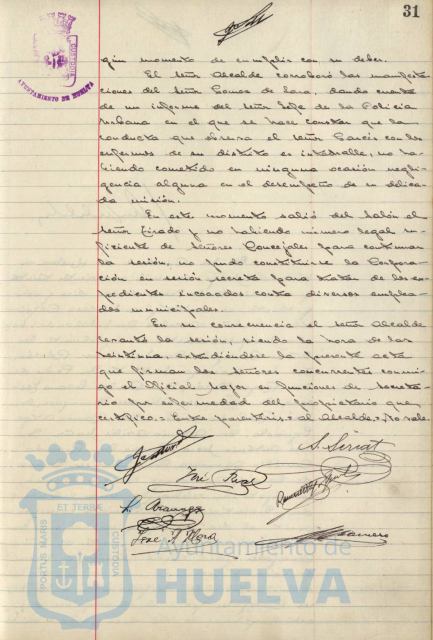 31
CUSTODIA
AYUNTAMIENTO DE HUELVA
gún momento de cumplir con su deber.
El señor Alcalde corroboró las manifesta-
ciones del señor Gomez de Lara, dando cuenta
de un informe del señor Jefe de la Policia
Urbana en el que se hace constar que la
conducta que observa el señor Garcés con los
enfermos de su distrito es intachable, no ha-
biendo cometido en ninguna ocasión negli-
gencia alguna en el desempeño de su delica-
da misión.
En este momento salió del salón el
señor Tirado y no habiendo número legal su-
ficiente de señores Concejales para continuar
la sesión, no pudo constituirse la Corpora-
ción en sesión secreta para tratar de los ex-
pedientes incoados contra diversos emplea-
dos municipales.
En su consecuencia el señor Alcalde
levantó la sesión, siendo la hora de las
veintiuna, extendiéndose la presente acta
que firman los señores concurrentes conmi-
go el Oficial Mayor en funciones de Secreta-
rio por enfermedad del propietario que
certifico.= Entre parentesis = al Alcalde = No vale.
José
PORTUS MARIS ET TERRAE CUSTODIA
Ayuntamiento de
HUELVA